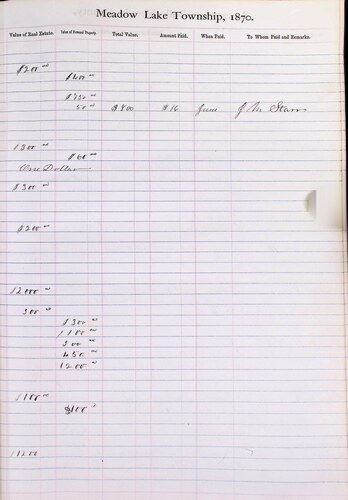 Meadow Lake Township, 1870.
Value of Real Estate. Value of Personal Property Total Value. Amount Paid. When Paid. To Whom Paid and Remarks.
$200 00
$400 00
$750 00
50 00 $800 $16 June J M Starr
$300 00
$60 00
One Dollar
$300 00
$200 00
$2000 00
300 00
$300 00
1100 00
300 00
450 00
1200 00
$100 00
$100
1200